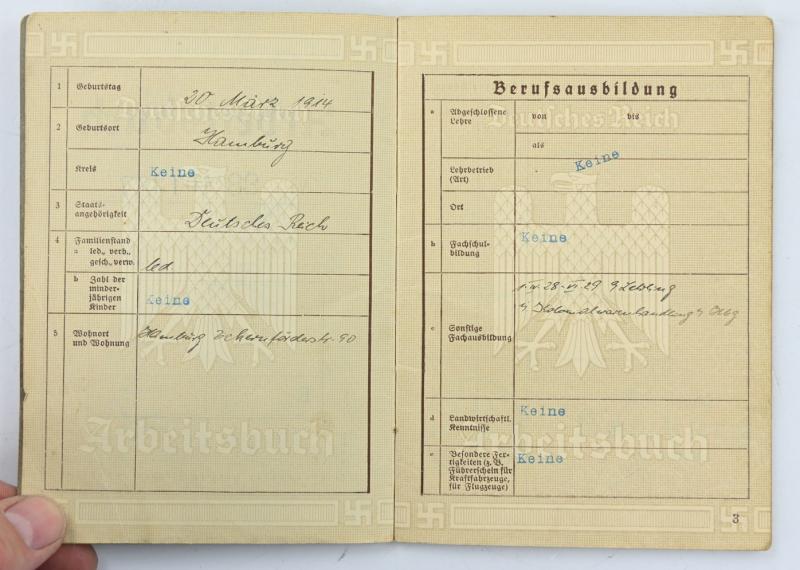 1 Geburtstag 20 März 1914
2 Geburtsort Hamburg
Kreis Keine
3 Staats-
angehörigkeit Deutsches-Reich
4 Familienstand
a led., verh.,
gesch., verw. led.
b Zahl der
minder-
jährigen
Kinder Keine
5 Wohnort
und Wohnung Hamburg
Deutsches Reich
Arbeitsbuch
Berufsausbildung
a Abgeschlossene
Lehre von bis
als
Keine
Lehrbetrieb
(Art)
Ort
b Fachschul-
bildung Keine
c Sonstige
Fachausbildung
d Landwirtschaftl.
Kenntnisse Keine
e Besondere Fer-
tigkeiten (z. B.
Führerschein für
Kraftfahrzeuge,
für Flugzeuge) Keine
Deutsches Reich
Arbeitsbuch
3